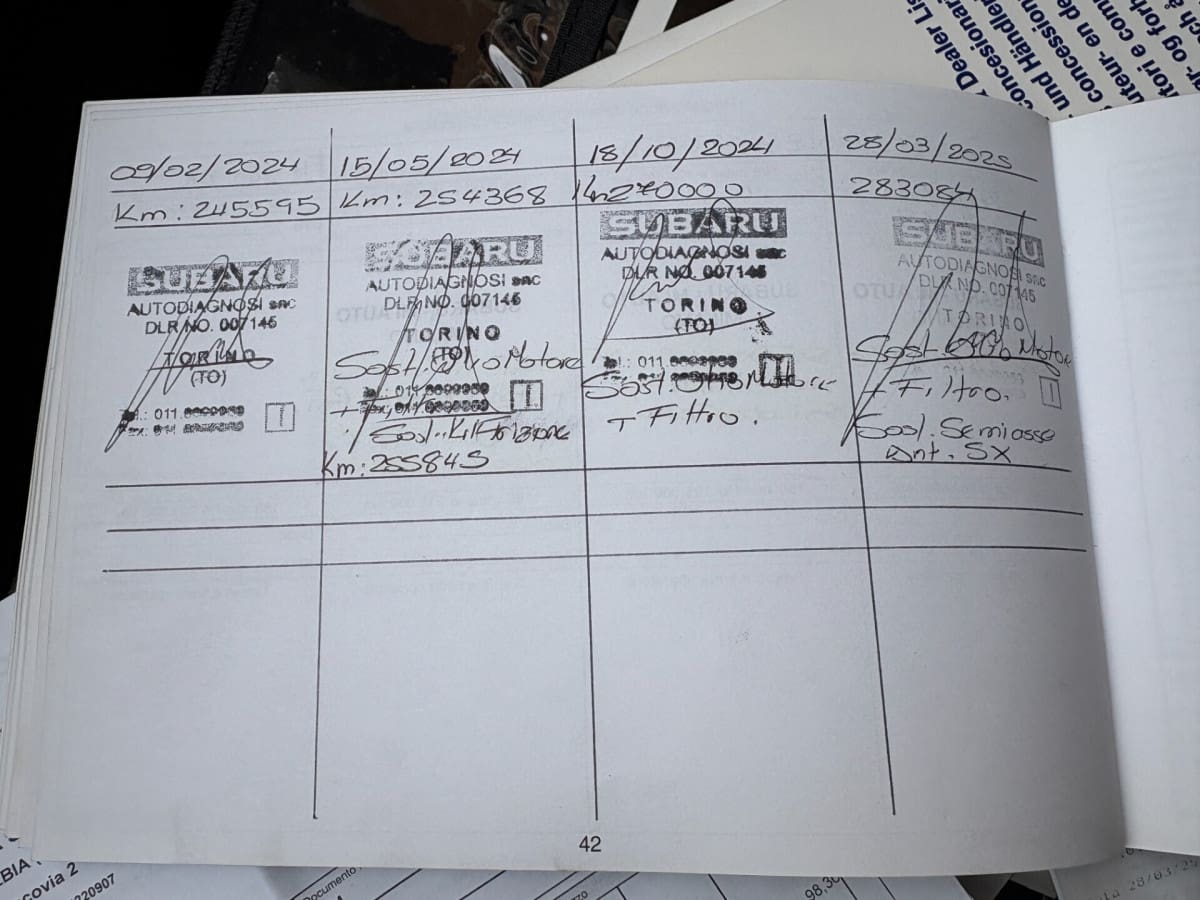 Dealer Lis
concessionari
und Händler
concession
uteur- en de
tori e com
og forh
09/02/2024
Km: 245595
SUBARU
AUTODIAGNOSI snc
DLR NO. 007145
TORINO
(TO)
011
15/05/2024
Km: 254368
SUBARU
AUTODIAGNOSI snc
DLR NO. 007145
TORINO
(TO)
Sost. Olio Motore
011
+
Sost. Kit
Km: 255845
18/10/2024
Km 270000
SUBARU
AUTODIAGNOSI snc
DLR NO. 007145
TORINO
(TO)
011
Sost. Olio Motore
+ Filtro.
28/03/2025
283084
SUBARU
AUTODIAGNOSI snc
DLR NO. 007145
TORINO
Sost. Olio Motore
+ Filtro.
Sost. Semiasse
Ant. SX
42
EBIA
covia 2
220907
Documento
98,30
28/03/25